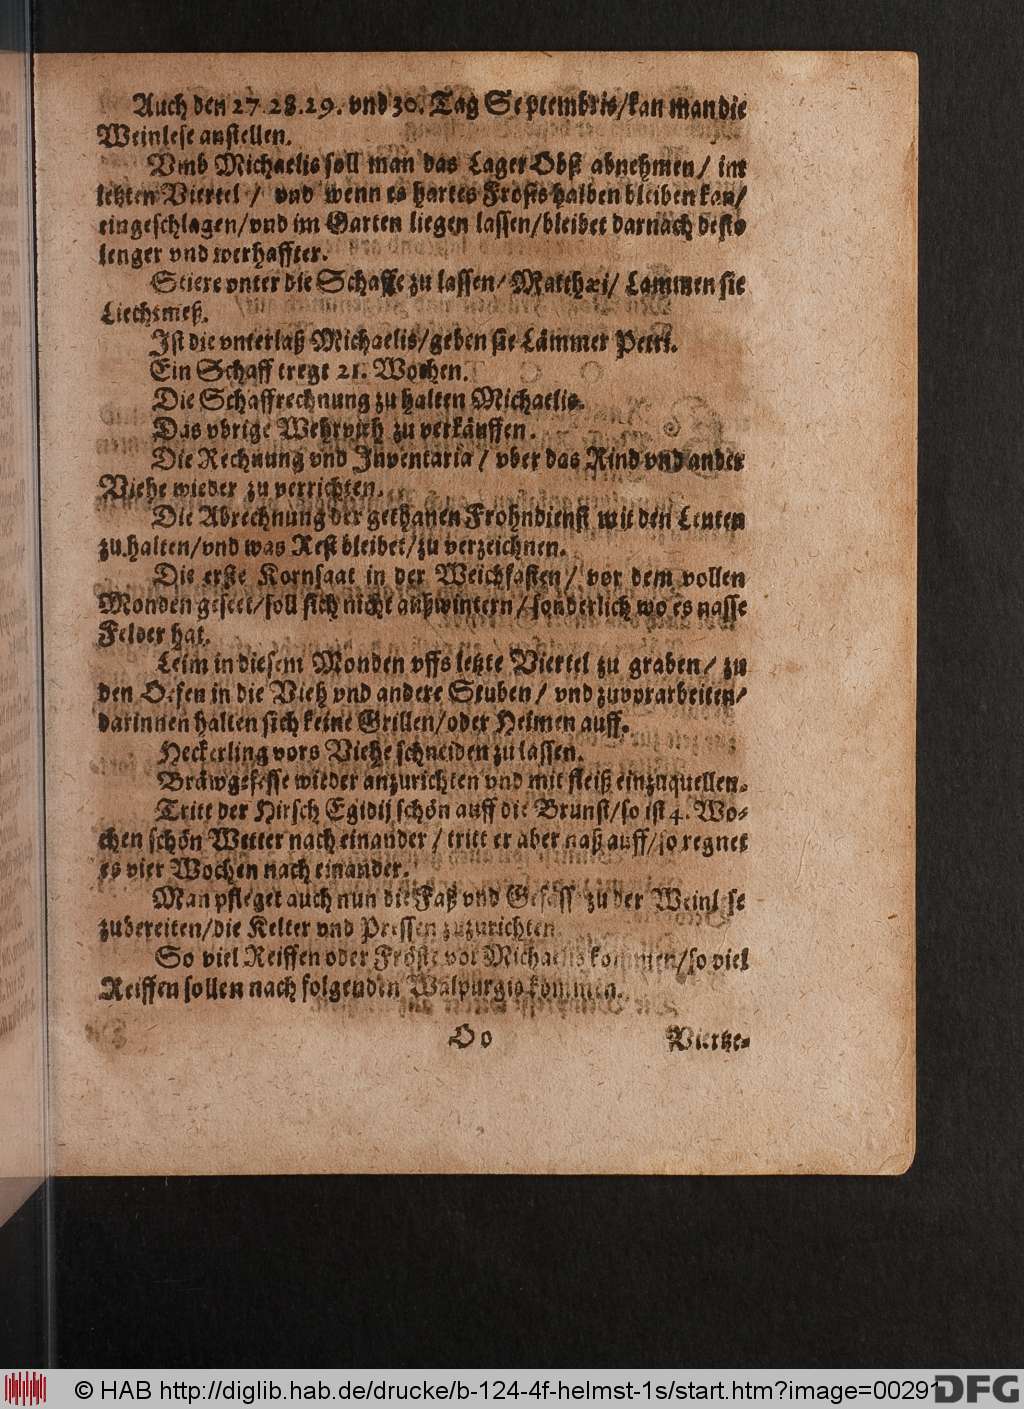 Auch den 27. 28. 29. vnd 30. Tag Septembris/kan man die
Weinlese anstellen.
Vmb Michaelis soll man das Lager Obst abnehmen/ im
letzten Viertel / vnd wenn es hartes Frosts halben bleiben kan/
eingeschlagen/vnd im Garten liegen lassen/bleibet darnach desto
lenger vnd werhaffter.
Stiere vnter die Schaffe zu lassen/ Matthæi/ Lammen sie
Liechtmeß.
Ist die vnterlaß Michaelis/geben sie Lämmer Petri.
Ein Schaff tregt 21. Wochen.
Die Schaffrechnung zu halten Michaelis.
Das vbrige Wehrvieh zu verkäuffen.
Die Rechnung vnd Inventaria / vber das Rind vnd ander
Viehe wieder zu verrichten.
Die Abrechnung der gethanen Frohndienst mit den Leuten
zu halten/vnd was Rest bleibet/zu verzeichnen.
Die erste Kornsaat in der Weichfasten/ vor dem vollen
Monden geseet/soll sich nicht außwintern/sonderlich wo es nasse
Felder hat.
Leim in diesem Monden vffs letzte Viertel zu graben/ zu
den Oefen in die Vieh vnd andere Stuben/ vnd zuvorarbeiten/
darinnen halten sich keine Grillen/oder Heimen auff.
Heckerling vors Viehe schneiden zu lassen.
Bräwgefesse wieder anzurichten vnd mit fleiß einzuquellen.
Tritt der Hirsch Egidij schön auff die Brunst/so ist 4. Wo-
chen schön Wetter nach einander / tritt er aber naß auff/so regnet
es vier Wochen nach einander.
Man pfleget auch nun die Faß vnd Gefäss zu der Weinlese
zubereiten/die Kelter vnd Pressen zuzurichten.
So viel Reiffen oder Fröste vor Michaelis kommen/so viel
Reiffen sollen nach folgenden Walpurgis kommen.
Oo
Viertze-
© HAB http://diglib.hab.de/drucke/b-124-4f-helmst-1s/start.htm?image=00291
DFG